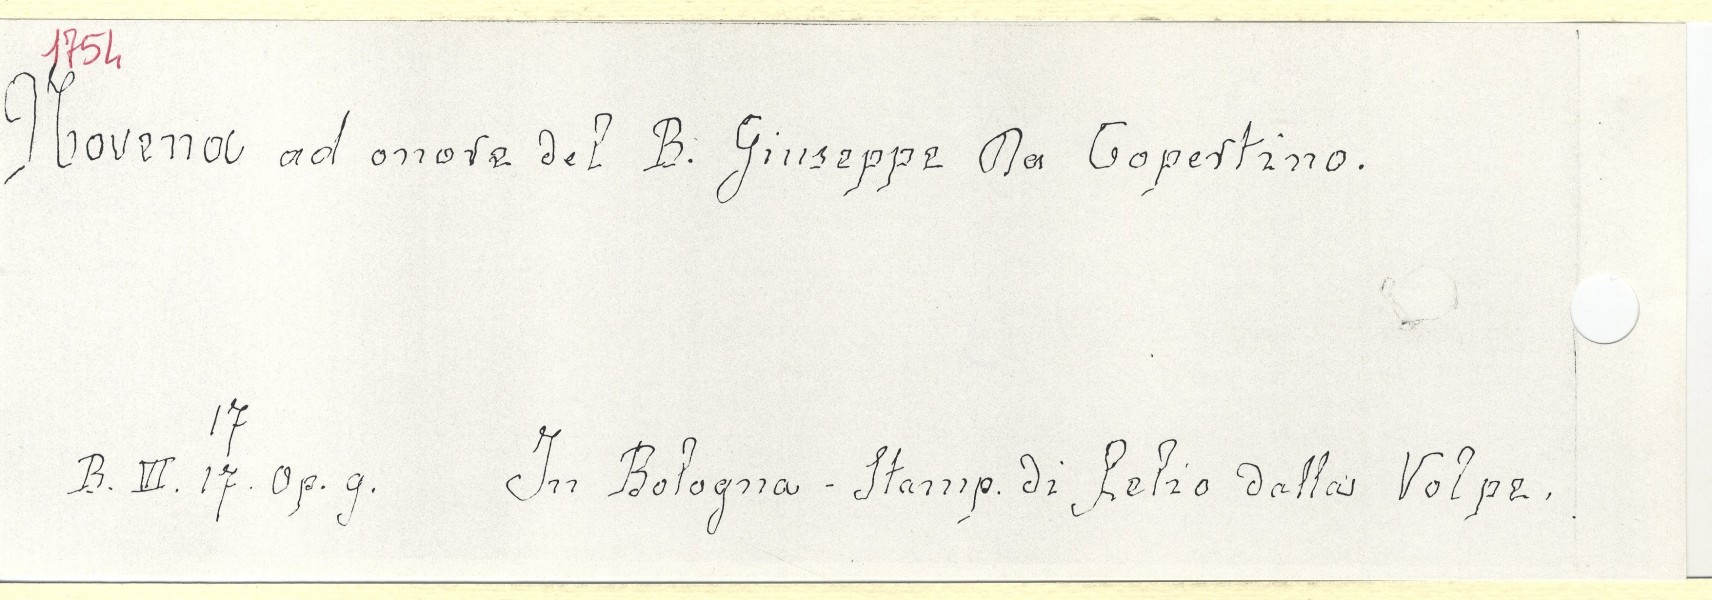 1754
Novena ad onore del B. Giuseppe Da Copertino.
17
B. VI. 17. Op. 9. In Bologna - Stamp. di Lelio dalla Volpe.